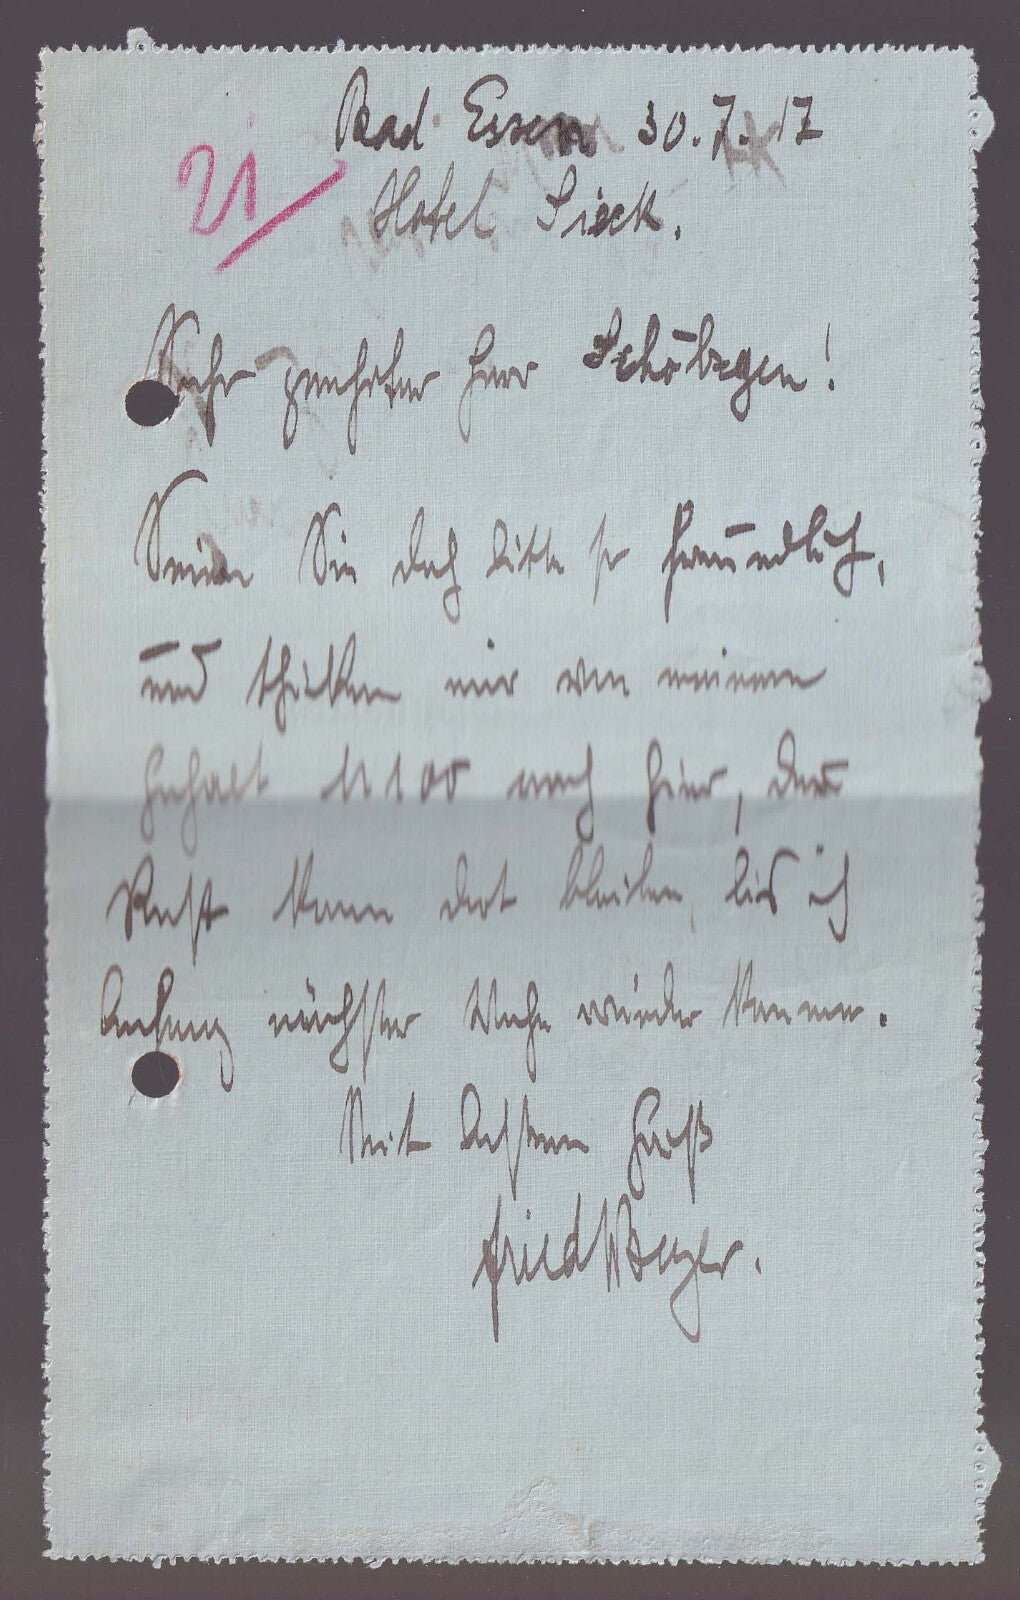 Bad Essen 30.7.17
21
Hotel Sieck.
Sehr geehrter Herr Schöbegen!
Seien Sie doch bitte so freundlich,
und schicken mir von meinem
Gehalt M 100 nach hier, der
Rest kann dort bleiben, bis ich
Anfang nächster Woche wieder komme.
Mit bestem Gruß
Fried Meyer.